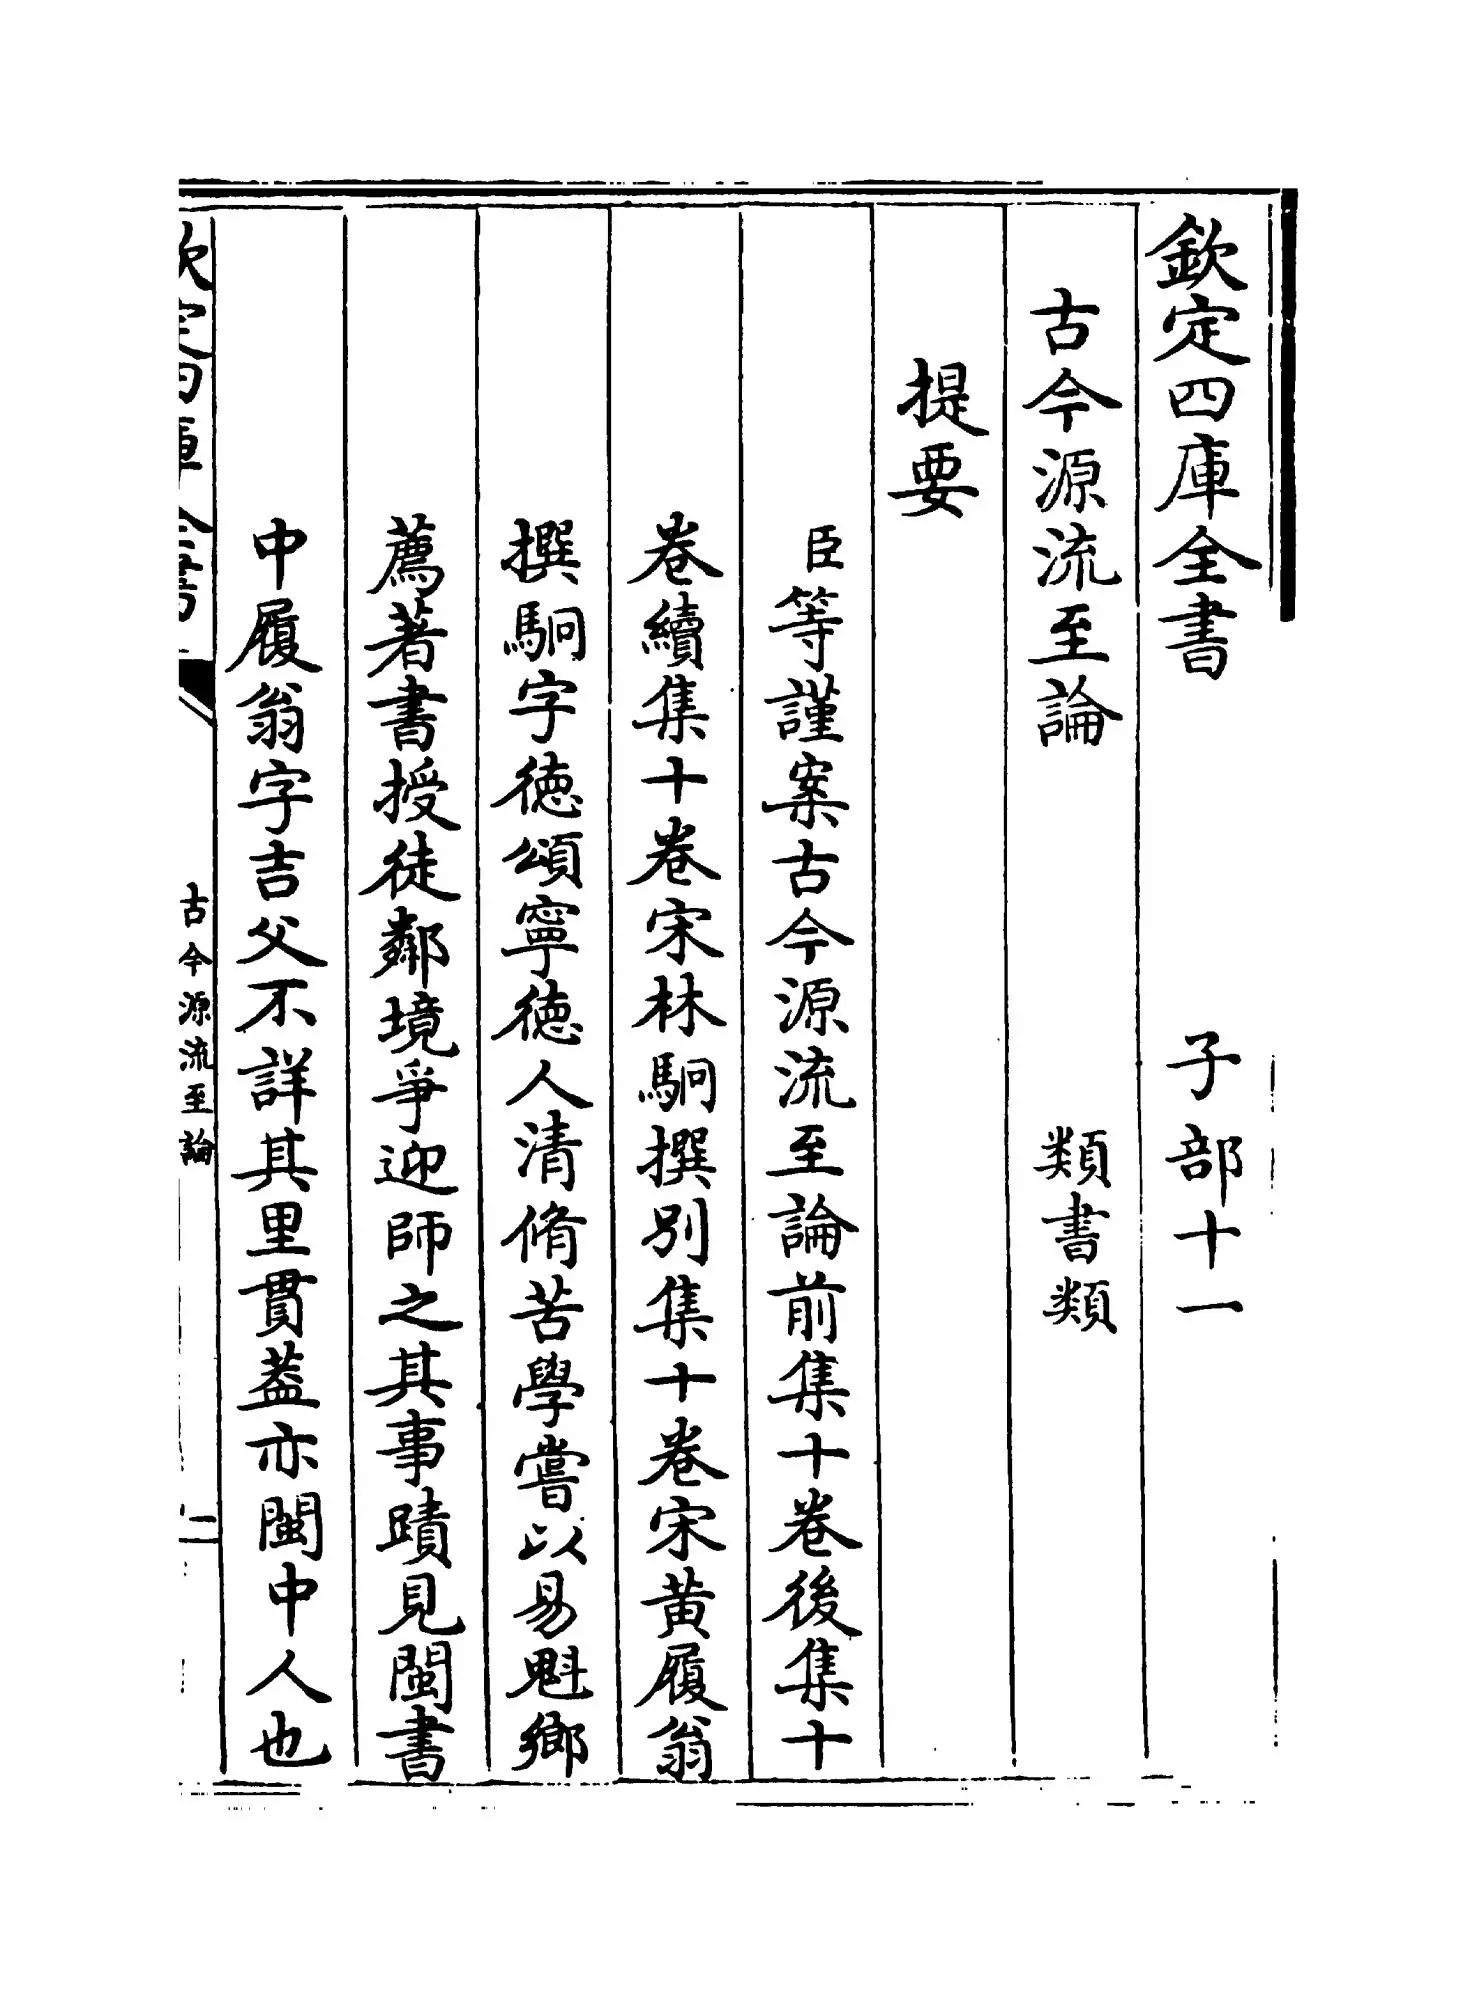 欽定四庫全書 子部十一
古今源流至論 類書類
提要
臣等謹案古今源流至論前集十卷後集十
卷續集十卷宋林駉撰別集十卷宋黄履翁
撰駉字徳頌寧徳人清脩苦學嘗以易魁鄉
薦著書授徒鄰境爭迎師之其事蹟見閩書
中履翁字吉父不詳其里貫葢亦閩中人也
欽定四庫全書 古今源流至論 一